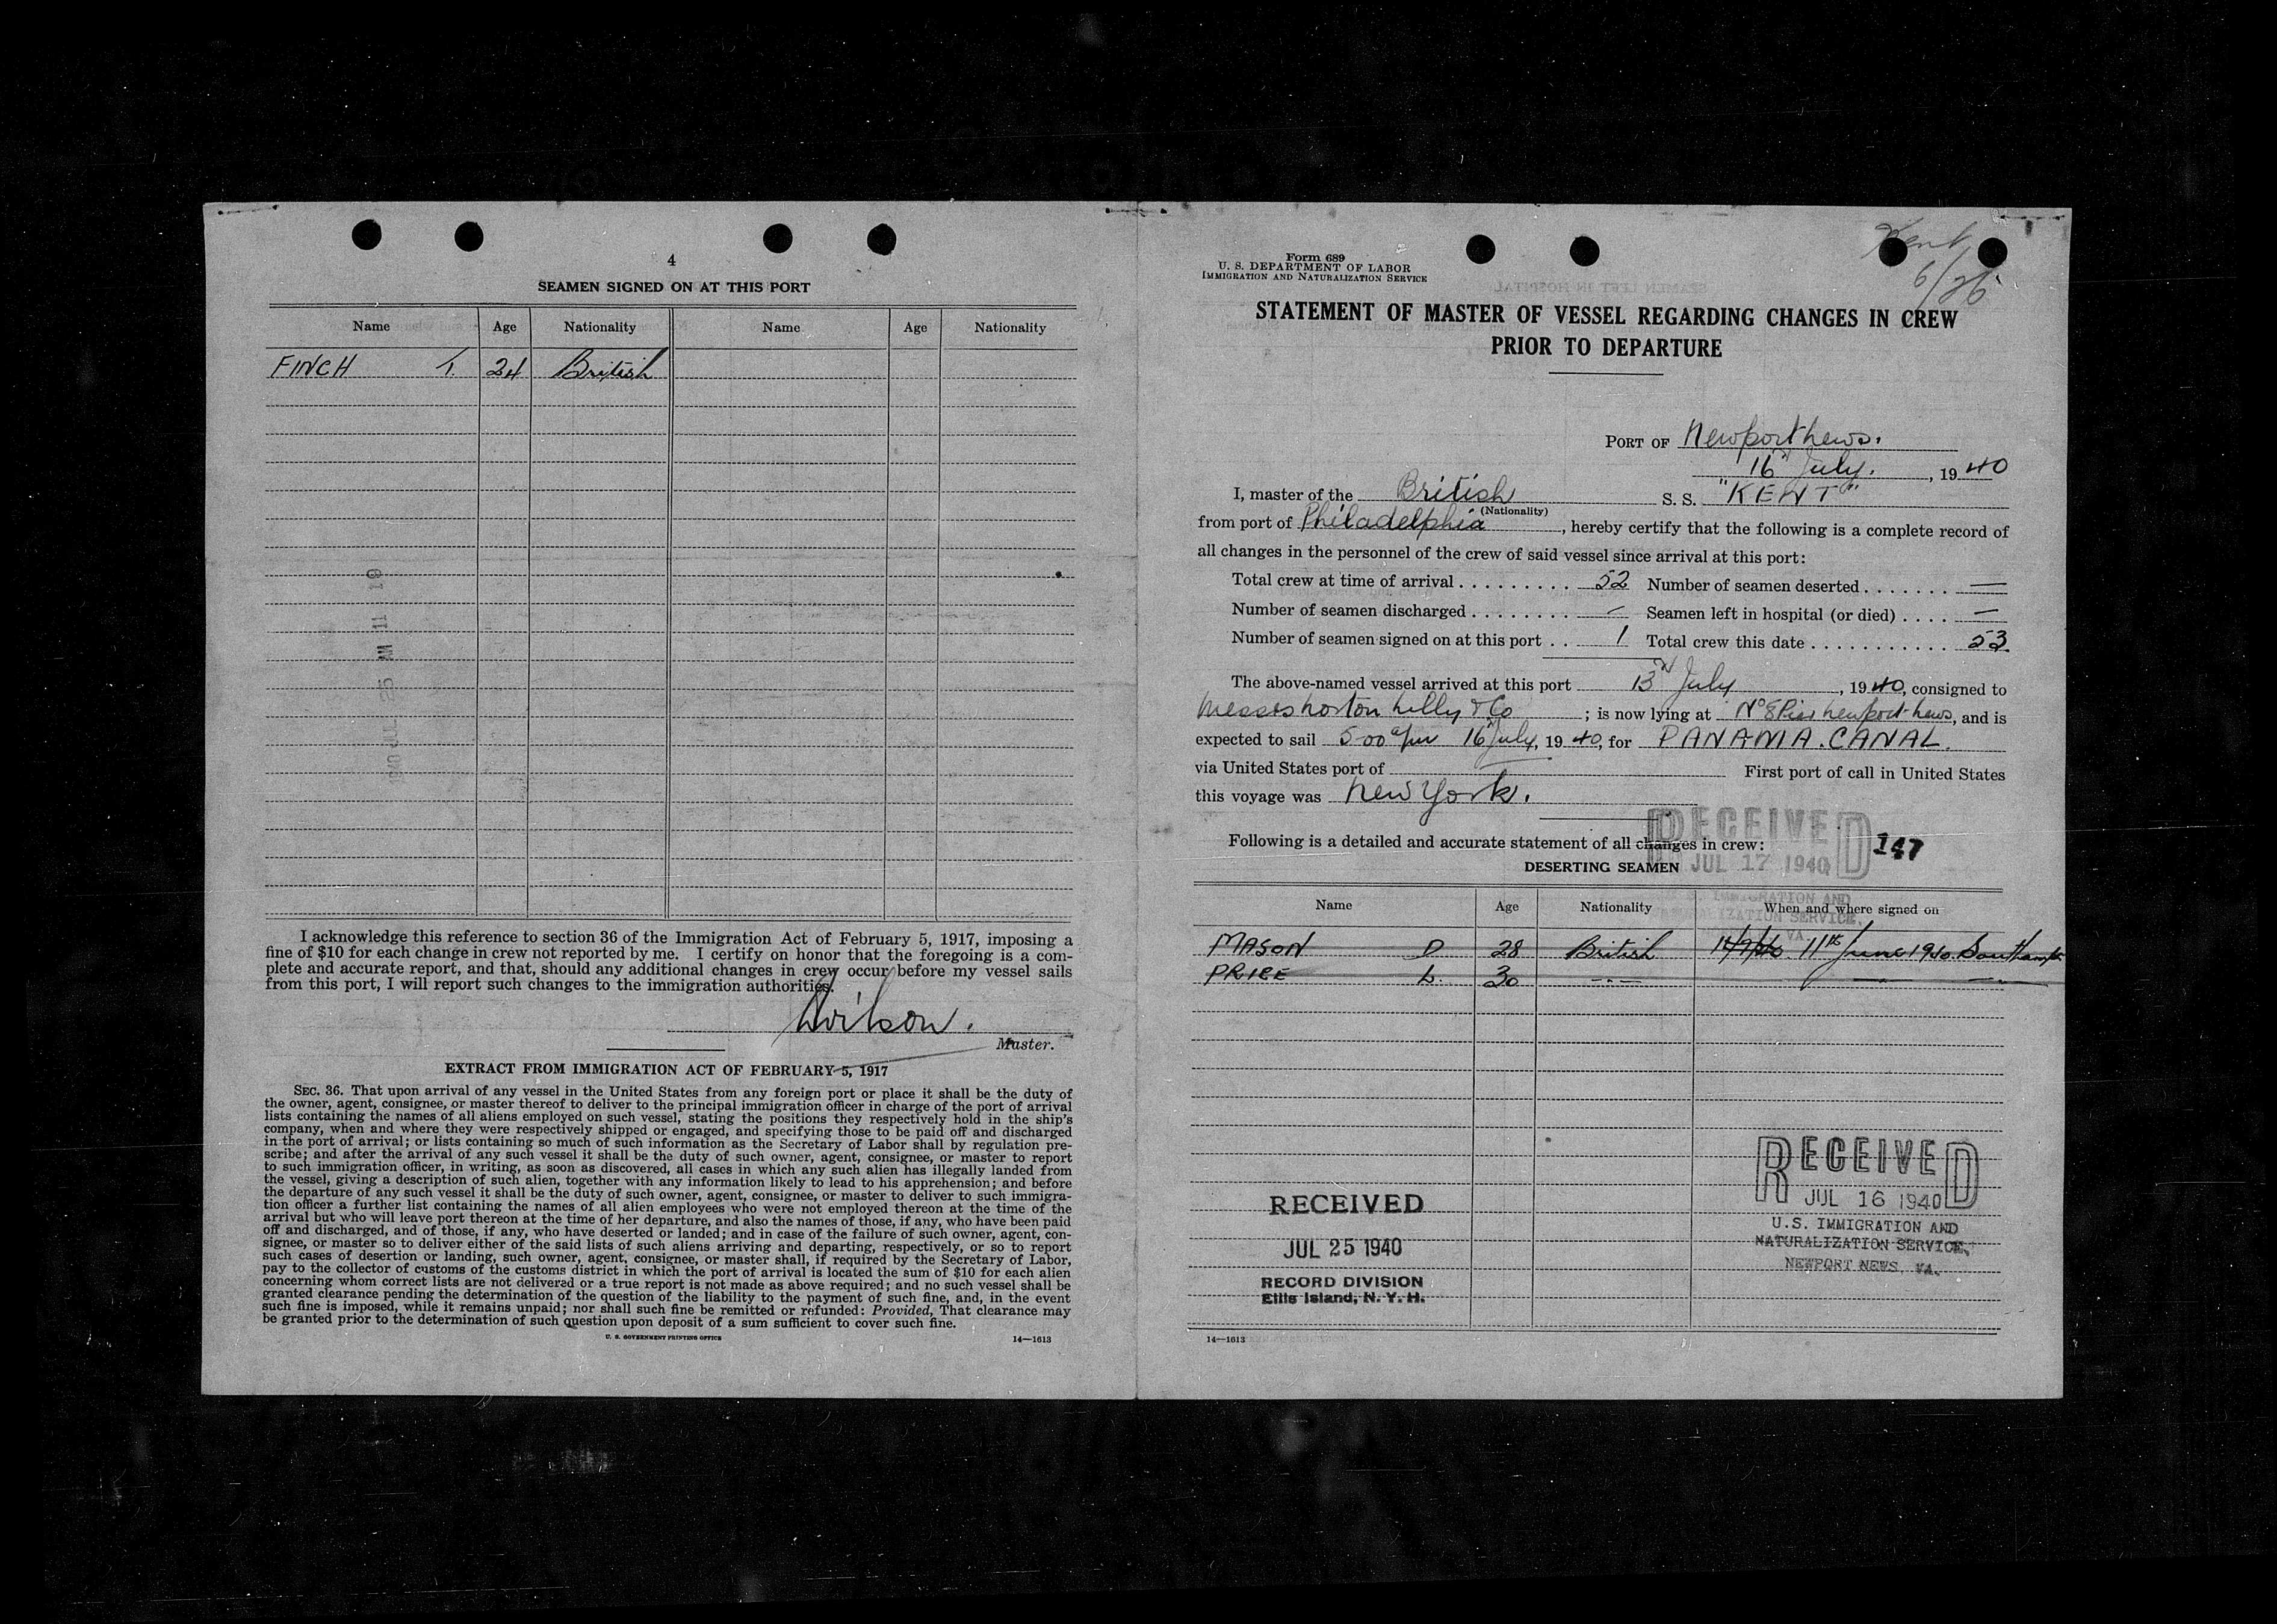 4
SEAMEN SIGNED ON AT THIS PORT
Name Age Nationality Name Age Nationality
FINCH T. 24 British
I acknowledge this reference to section 36 of the Immigration Act of February 5, 1917, imposing a
fine of $10 for each change in crew not reported by me. I certify on honor that the foregoing is a com-
plete and accurate report, and that, should any additional changes in crew occur before my vessel sails
from this port, I will report such changes to the immigration authorities.
Wilson.
Master.
EXTRACT FROM IMMIGRATION ACT OF FEBRUARY 5, 1917
SEC. 36. That upon arrival of any vessel in the United States from any foreign port or place it shall be the duty of
the owner, agent, consignee, or master thereof to deliver to the principal immigration officer in charge of the port of arrival
lists containing the names of all aliens employed on such vessel, stating the positions they respectively hold in the ship's
company, when and where they were respectively shipped or engaged, and specifying those to be paid off and discharged
in the port of arrival; or lists containing so much of such information as the Secretary of Labor shall by regulation pre-
scribe; and after the arrival of any such vessel it shall be the duty of such owner, agent, consignee, or master to report
to such immigration officer, in writing, as soon as discovered, all cases in which any such alien has illegally landed from
the vessel, giving a description of such alien, together with any information likely to lead to his apprehension; and before
the departure of any such vessel it shall be the duty of such owner, agent, consignee, or master to deliver to such immigra-
tion officer a further list containing the names of all alien employees who were not employed thereon at the time of the
arrival but who will leave port thereon at the time of her departure, and also the names of those, if any, who have been paid
off and discharged, and of those, if any, who have deserted or landed; and in case of the failure of such owner, agent, con-
signee, or master so to deliver either of the said lists of such aliens arriving and departing, respectively, or so to report
such cases of desertion or landing, such owner, agent, consignee, or master shall, if required by the Secretary of Labor,
pay to the collector of customs of the customs district in which the port of arrival is located the sum of $10 for each alien
concerning whom correct lists are not delivered or a true report is not made as above required; and no such vessel shall be
granted clearance pending the determination of the question of the liability to the payment of such fine, and, in the event
such fine is imposed, while it remains unpaid; nor shall such fine be remitted or refunded: Provided, That clearance may
be granted prior to the determination of such question upon deposit of a sum sufficient to cover such fine.
U. S. GOVERNMENT PRINTING OFFICE 14—1613
Kent
6/26
Form 689
U. S. DEPARTMENT OF LABOR
IMMIGRATION AND NATURALIZATION SERVICE
STATEMENT OF MASTER OF VESSEL REGARDING CHANGES IN CREW
PRIOR TO DEPARTURE
PORT OF Newport news.
16 July. , 1940
I, master of the British S. S. "KENT"
(Nationality)
from port of Philadelphia, hereby certify that the following is a complete record of
all changes in the personnel of the crew of said vessel since arrival at this port:
Total crew at time of arrival . . . . . . . . . . 52 Number of seamen deserted . . . . . . . —
Number of seamen discharged . . . . . . . . . — Seamen left in hospital (or died) . . . . —
Number of seamen signed on at this port . . 1 Total crew this date . . . . . . . . . . . 53
The above-named vessel arrived at this port 13 July , 1940, consigned to
Messrs Norton Lilly & Co ; is now lying at No 8 Pier Newport news, and is
expected to sail 5-00 16 July, 1940, for PANAMA CANAL.
via United States port of First port of call in United States
this voyage was New York.
Following is a detailed and accurate statement of all changes in crew:
RECEIVED
JUL 17 1940
147
DESERTING SEAMEN
Name Age Nationality When and where signed on
MASON D 28 British 11th June 1940. Southampton
PRICE L. 30 -·-- — —
RECEIVED
JUL 25 1940
RECORD DIVISION
Ellis Island, N. Y. H.
RECEIVED
JUL 16 1940
U.S. IMMIGRATION AND
NATURALIZATION SERVICE,
NEWPORT NEWS, VA.
14—1613